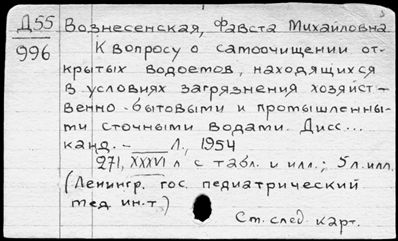 Д55 Вознесенская, Фавста Михайловна
996 К вопросу о самоочищении от-
крытых водоемов, находящихся
в условиях загрязнения хозяйст-
венно-бытовыми и промышленны-
ми сточными водами. Дисс...
канд. - Л., 1954
271, XXXVI л с табл. и илл.; 5 л. илл.
(Ленингр. гос. педиатрический
мед. ин.т)
См. след. карт.